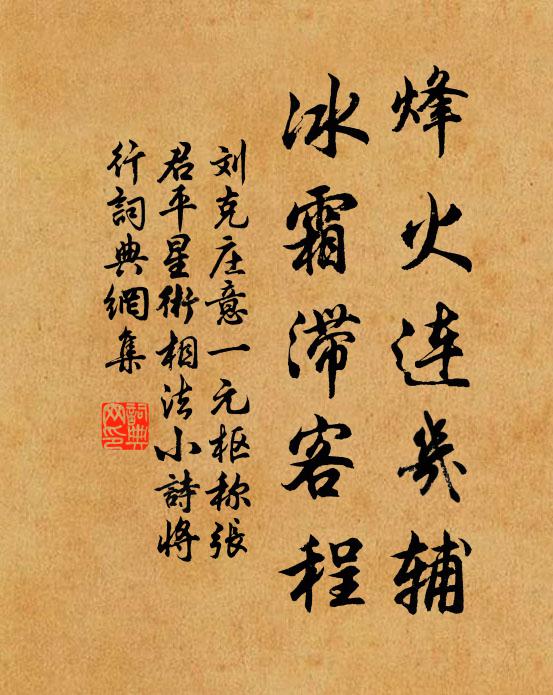 烽火连畿辅
冰霜滞客程
刘克庄意一元枢称张
君平星術相法小詩将
行詞典網集
詞典
网印